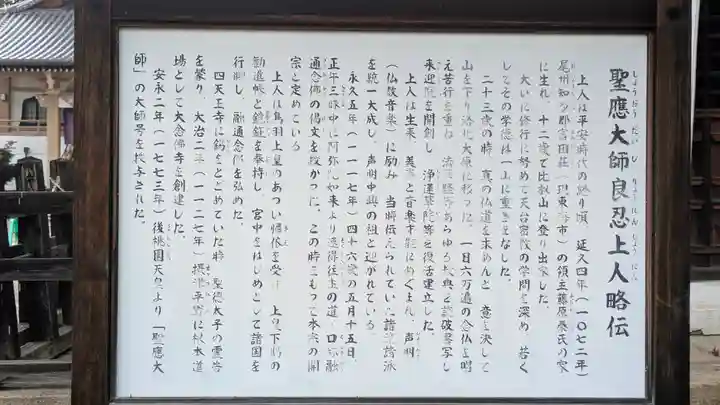 聖應大師良忍上人略伝
しょうおうだいしりょうにんしょうにん
上人は平安時代の終り頃 延久四年（一〇七二年）
尾州知多郡富田荘（現東海市）の領主藤原秦氏の家
に生れ、十二歳で比叡山に登り出家した。
大いに修行に努めて天台密教の学問を深め、若く
してその学徳は一山に重きをなした。
二十三歳の時 真の仏道を求めんと 意を決して
山を下り洛北大原に移った。一日六万遍の念仏を唱
え苦行を重ね 法
来迎院を開創し 浄蓮華院等を復活建立した。
上人は生来、美声と音楽才能にめぐまれ、声明
（仏教音楽）に励み 当時伝えられていた諸流諸派
を統一大成し、声明中興の祖と迎がれている。
永久五年（一一一七年）四十六歳の五月十五日、
正午三昧中に阿弥陀如来より速得往生の道
通念佛の偈文を授かった。この時をもって本宗の開
宗と定めている
上人は鳥羽上皇のあつい帰依を受け 上皇下賜の
勧進帳と鏡鉦を奉持し、宮中をはじめとして諸国を
行脚し、融通念佛を弘めた。
四天王寺に錫をとどめていた時 聖徳太子の霊告
を蒙り、大治二年（一一二七年）摂津平野に根本道
場として大念佛寺を創建した。
安永二年（一七七三年）後桃園天皇より「聖應大
師」の大師号を授与された。